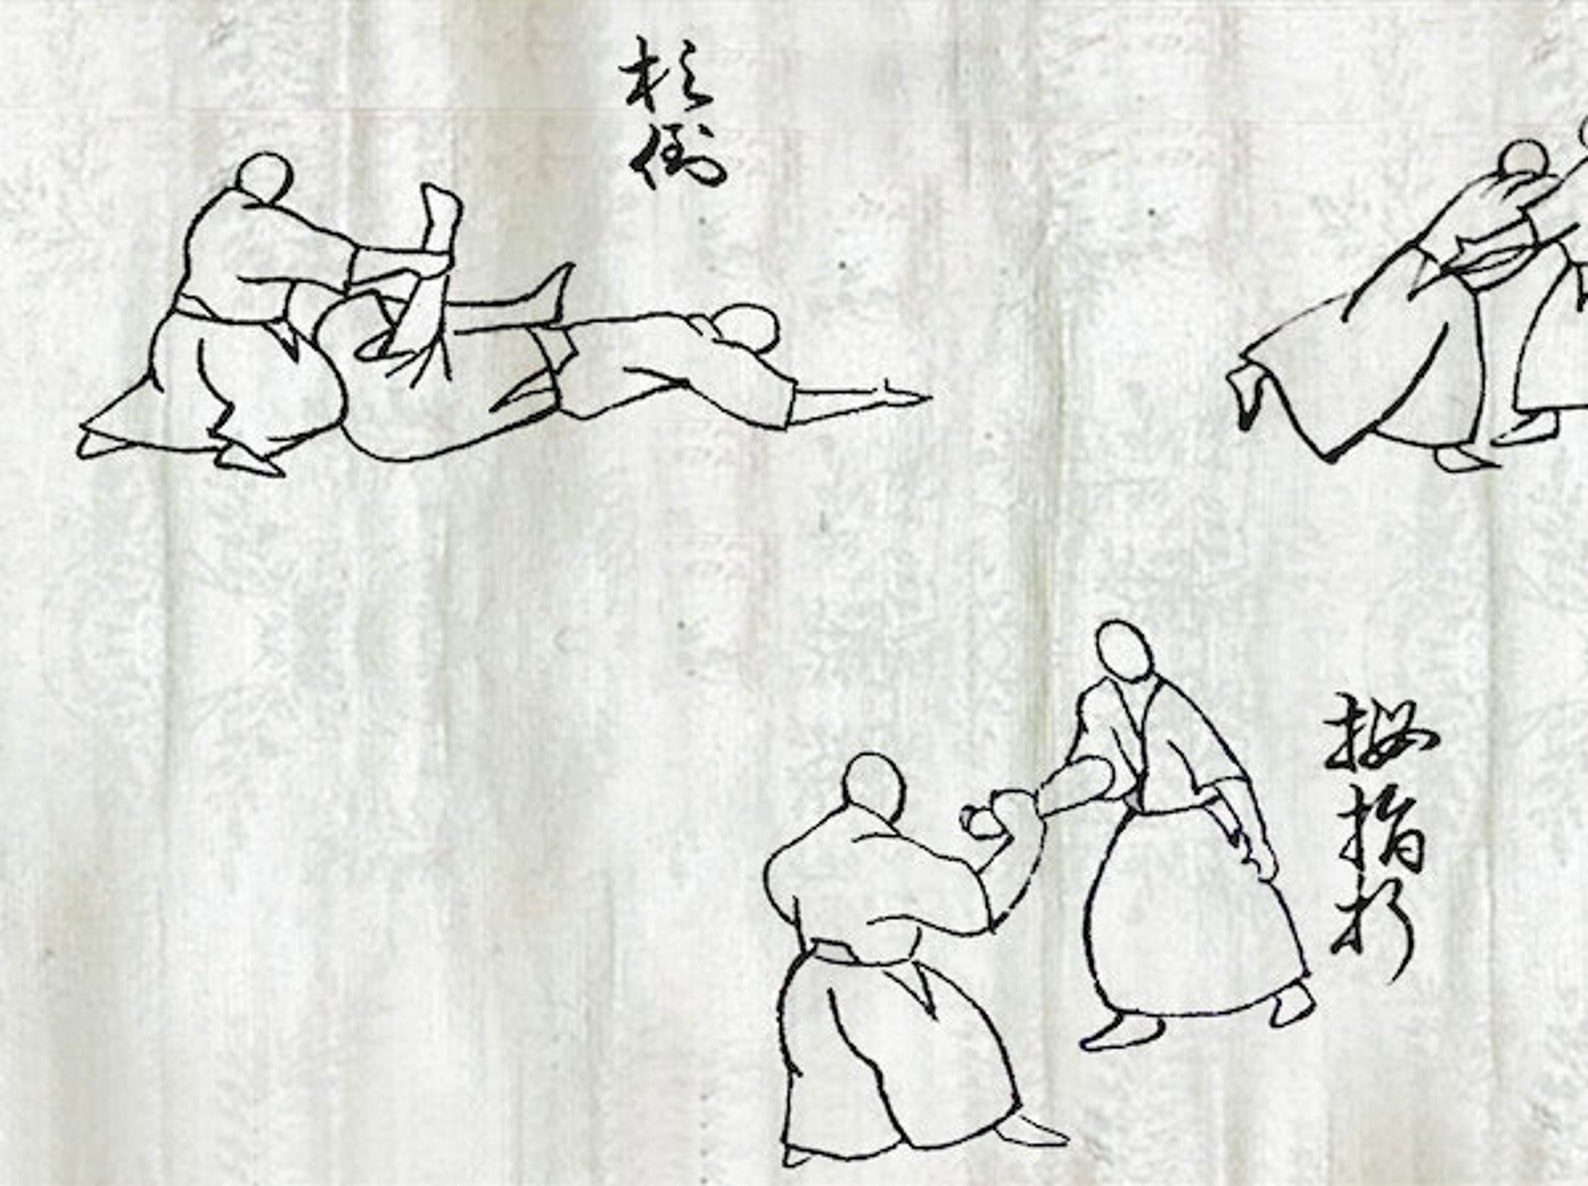 杉倒
指折